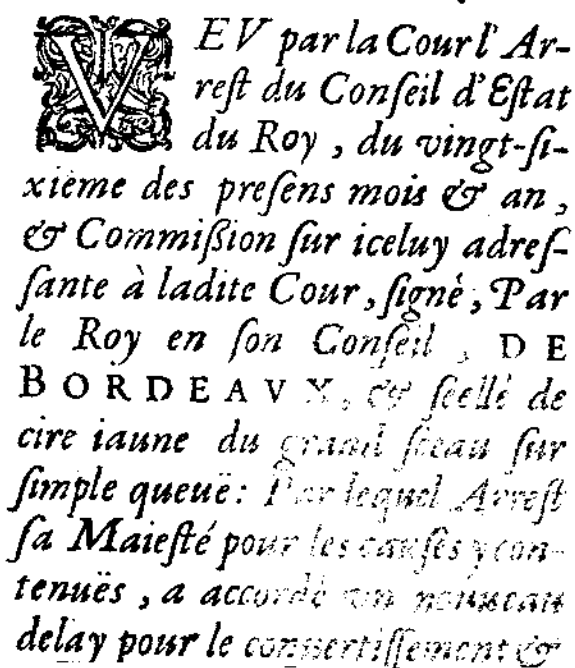 VEV par la Cour l'Ar-
reſt du Conſeil d'Eſtat
du Roy, du vingt-ſi-
xiéme des preſens mois & an,
& Commiſſion ſur iceluy adreſ-
ſante à ladite Cour, ſigné, Par
le Roy en ſon Conſeil, DE
BORDEAVX, & ſeellé de
cire iaune du grand ſceau ſur
ſimple queuë: Par lequel Arreſt
ſa Maieſté pour les cauſes y con-
tenuës, a accordé vn nouueau
delay pour le conuertiſſement &